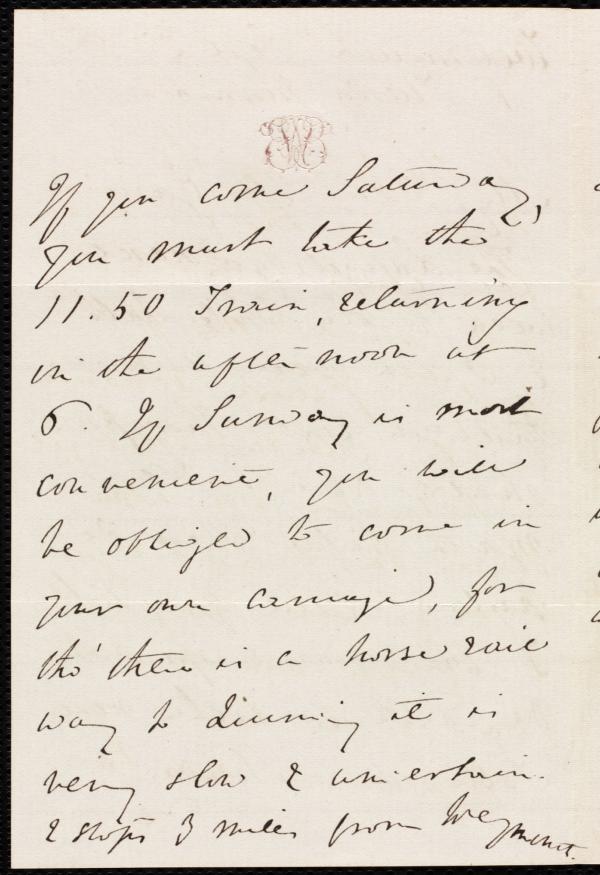 If you come Saturday,
you must take the
11.50 Train, returning
in the afternoon at
6. If Sunday is most
convenient, you will
be obliged to come in
your own carriage, for
tho' there is a horse rail
way to Quincy it is
very slow & uncertain.
& stops 3 miles from Weymouth.